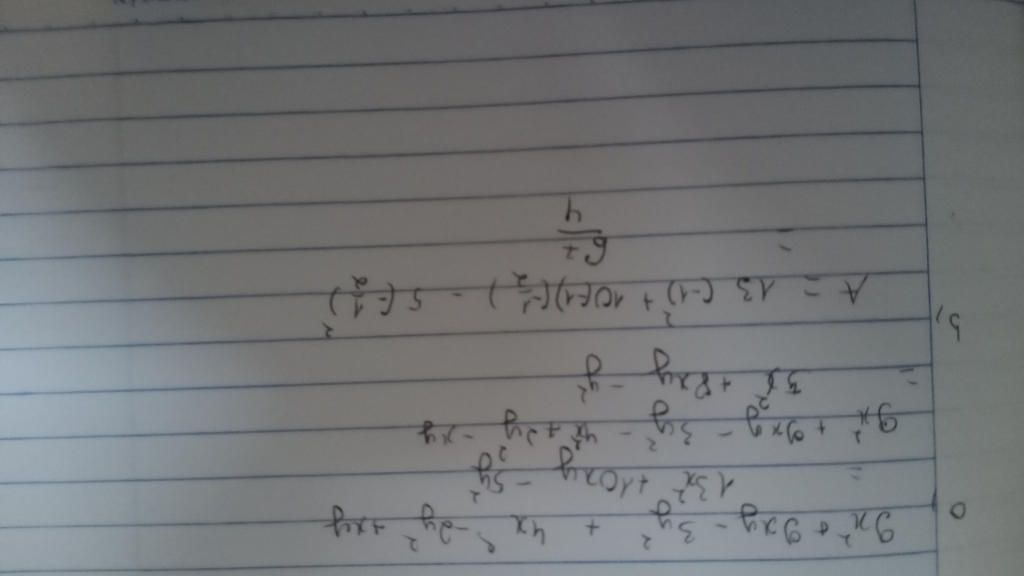 a 9x² + 9xy - 3y² + 4x² - 2y² + xy
= 13x² + 10xy - 5y²
9x² + 9xy - 3y² - 4x² + 2y² - xy
= + 8xy - y²
b, A = 13 (-1)² + 10(-1)(-1/2) - 5 (-1/2)²
= 67/4